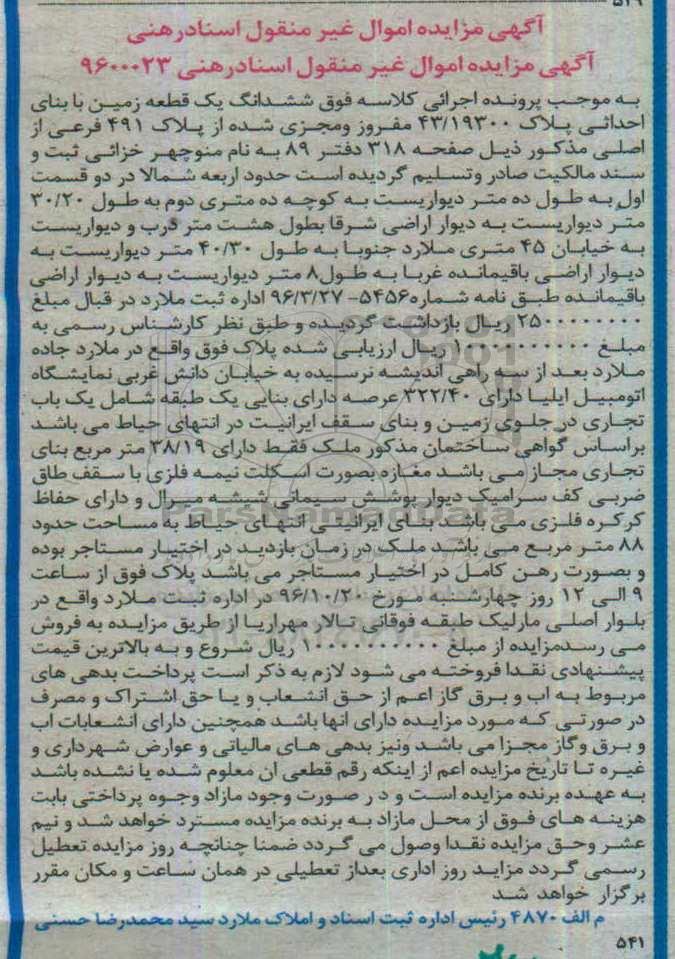 ۵۲۹
آگهی مزایده اموال غیر منقول اسنادرهنی
آگهی مزایده اموال غیر منقول اسنادرهنی ۹۶۰۰۰۲۳
به موجب پرونده اجرائی کلاسه فوق ششدانگ یک قطعه زمین با بنای
احداثی پلاک ۴۳/۱۹۳۰۰ مفروز ومجزی شده از پلاک ۴۹۱ فرعی از
اصلی مذکور ذیل صفحه ۳۱۸ دفتر ۸۹ به نام منوچهر خزائی ثبت و
سند مالکیت صادر وتسلیم گردیده است حدود اربعه شمالا در دو قسمت
اول به طول ده متر دیواریست به کوچه ده متری دوم به طول ۳۰/۲۰
متر دیواریست به دیوار اراضی شرقا بطول هشت متر درب و دیواریست
به خیابان ۴۵ متری ملارد جنوبا به طول ۴۰/۳۰ متر دیواریست به
دیوار اراضی باقیمانده غربا به طول۸ متر دیواریست به دیوار اراضی
باقیمانده طبق نامه شماره۵۴۵۶- ۹۶/۳/۲۷ اداره ثبت ملارد در قبال مبلغ
۲۵۰۰۰۰۰۰۰۰ ریال بازداشت گردیده و طبق نظر کارشناس رسمی به
مبلغ ۱۰۰۰۰۰۰۰۰۰۰ ریال ارزیابی شده پلاک فوق واقع در ملارد جاده
ملارد بعد از سه راهی اندیشه نرسیده به خیابان دانش غربی نمایشگاه
اتومبیل ایلیا دارای ۳۲۲/۴۰ عرصه دارای بنایی یک طبقه شامل یک باب
تجاری در جلوی زمین و بنای سقف ایرانیت در انتهای حیاط می باشد
براساس گواهی ساختمان مذکور ملک فقط دارای ۳۸/۱۹ متر مربع بنای
تجاری مجاز می باشد مغازه بصورت اسکلت نیمه فلزی با سقف طاق
ضربی کف سرامیک دیوار پوشش سیمانی شیشه میرال و دارای حفاظ
کرکره فلزی می باشد بنای ایرانیتی انتهای حیاط به مساحت حدود
۸۸ متر مربع می باشد ملک در زمان بازدید در اختیار مستاجر بوده
و بصورت رهن کامل در اختیار مستاجر می باشد پلاک فوق از ساعت
۹ الی ۱۲ روز چهارشنبه مورخ ۹۶/۱۰/۲۰ در اداره ثبت ملارد واقع در
بلوار اصلی مارلیک طبقه فوقانی تالار مهرآریا از طریق مزایده به فروش
می رسدمزایده از مبلغ ۱۰۰۰۰۰۰۰۰۰۰ ریال شروع و به بالاترین قیمت
پیشنهادی نقدا فروخته می شود لازم به ذکر است پرداخت بدهی های
مربوط به اب و برق گاز اعم از حق انشعاب و یا حق اشتراک و مصرف
در صورتی که مورد مزایده دارای انها باشد همچنین دارای انشعابات اب
و برق وگاز مجزا می باشد ونیز بدهی های مالیاتی و عوارض شهرداری و
غیره تا تاریخ مزایده اعم از اینکه رقم قطعی ان معلوم شده یا نشده باشد
به عهده برنده مزایده است و در صورت وجود مازاد وجوه پرداختی بابت
هزینه های فوق از محل مازاد به برنده مزایده مسترد خواهد شد و نیم
عشر وحق مزایده نقدا وصول می گردد ضمنا چنانچه روز مزایده تعطیل
رسمی گردد مزاید روز اداری بعداز تعطیلی در همان ساعت و مکان مقرر
برگزار خواهد شد
م الف ۴۸۷۰ رئیس اداره ثبت اسناد و املاک ملارد سید محمدرضا حسنی
۵۴۱
ParsNamadData